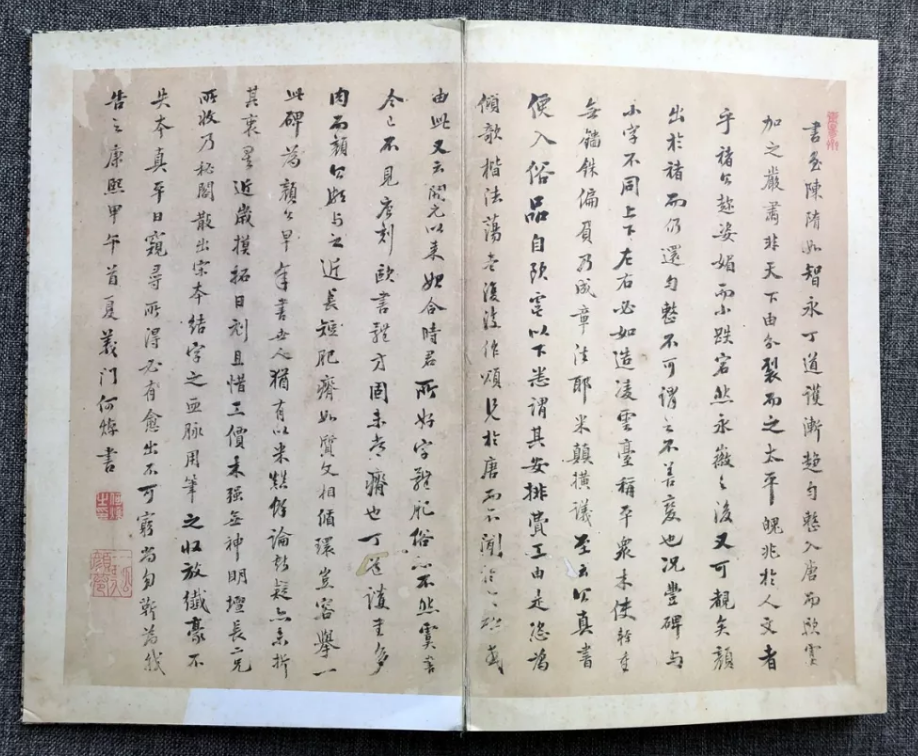 書至陳隋如智永丁道護漸趨勻整入唐而歐虞
加之嚴肅非天下由分裂而之太平的兆於人文者
乎褚公趂姿媚而小跌宕然永徽之後又可覩矣顏
出於褚而仍還勻整不可謂之不善變也況豐碑與
小字不同上下左右必如造凌雲臺稱平眾木使輕重
無錙銖偏負乃成章法耶米顛橫議至云公真書
便入俗品自歐虞以下悉謂其安排費工由是恣為
傾欹楷法蕩無復後作頌見於唐而不聞於
由此又云開元以來如合時君所好字體肥俗不然虞書
今已不見唐刻歐書體方固未為癯也丁道護書多
肉而顏公頗與之近長短肥瘠如質文相循環豈容舉一
此碑為顏公早年書世人猶有以米黻俗論致疑亦未折
其衷耳近歲摸拓日刓且惜工價未强無神明壇長二兄
所收乃秘閣散出宋本結字之血脈用筆之收放纖豪不
失本真平日窺尋所得必有愈出不可窮尚勿靳為我
告之康熙甲午首夏義門何焯書